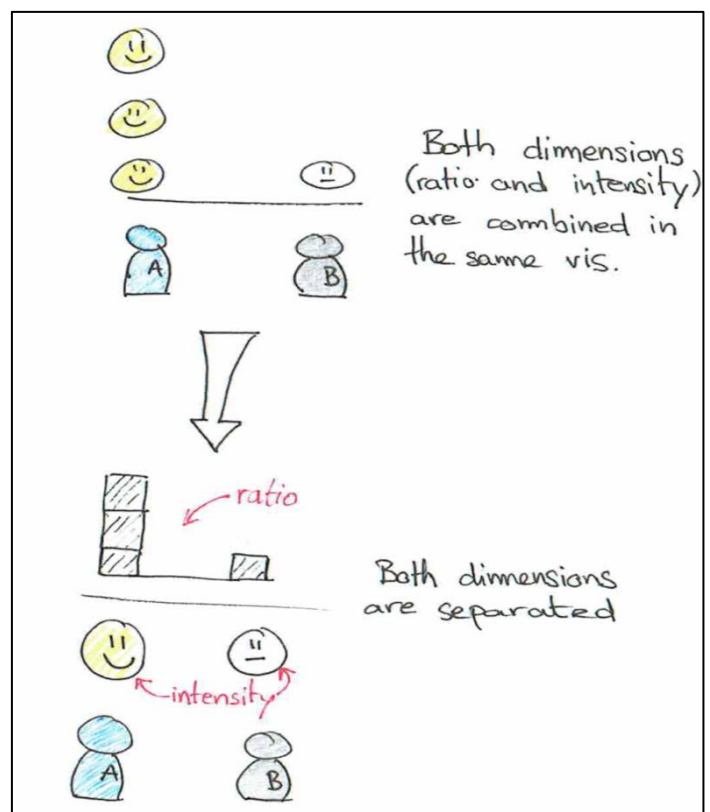 Both dimensions
(ratio and intensity)
are combined in
the same vis.
A
B
ratio
Both dimensions
are separated
intensity
A
B